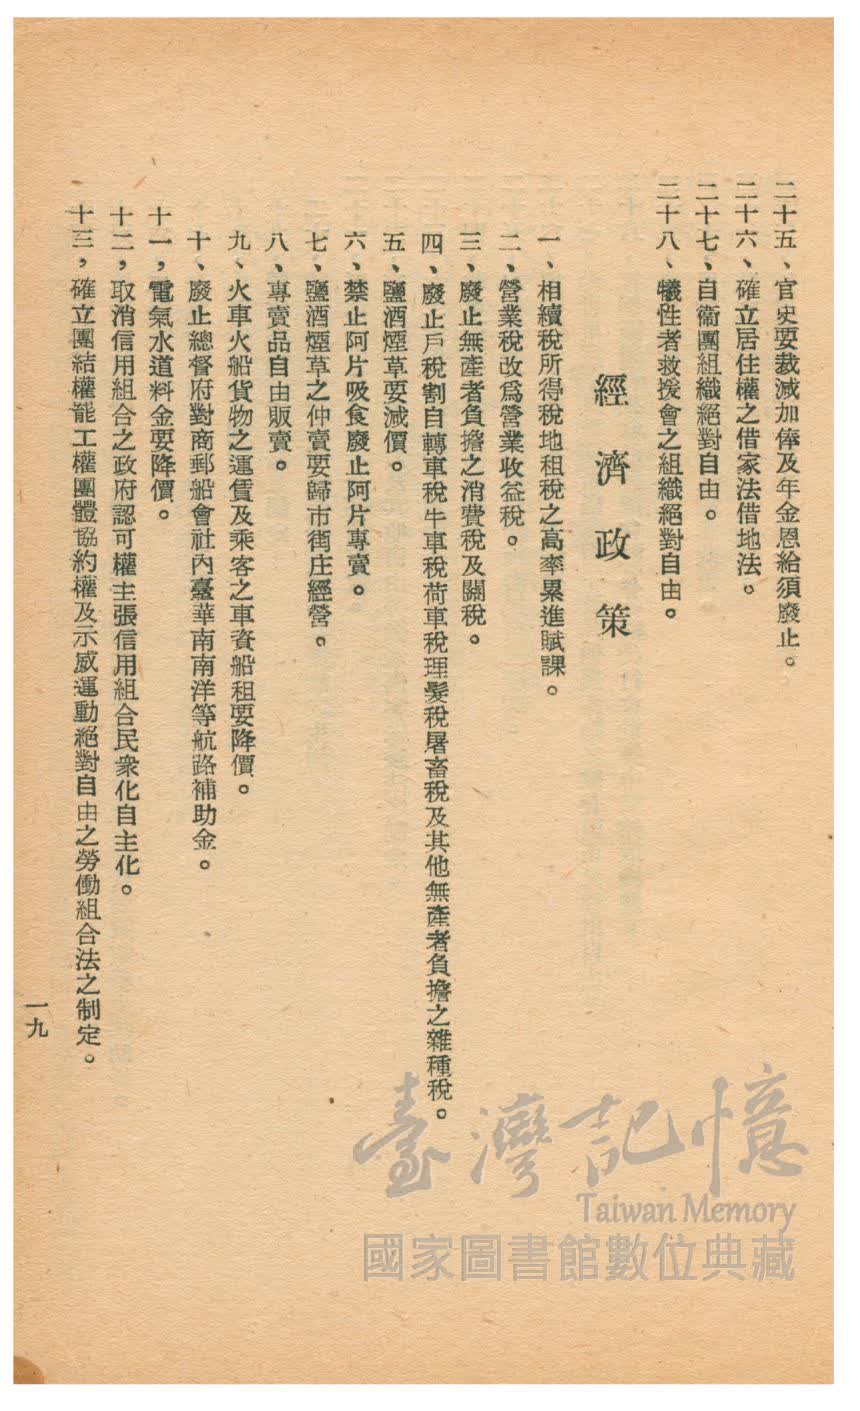 二十五、官吏要裁減加俸及年金恩給須廢止。
二十六、確立居住權之借家法借地法。
二十七、自衞團組織絕對自由。
二十八、犧性者救援會之組織絕對自由。
經濟政策
一、相續稅所得稅地租稅之高率累進賦課。
二、營業稅改爲營業收益稅。
三、廢止無產者負擔之消費稅及關稅。
四、廢止戶稅割自轉車稅牛車稅荷車稅理髮稅屠畜稅及其他無產者負擔之雜種稅。
五、鹽酒煙草要減價。
六、禁止阿片吸食廢止阿片專賣。
七、鹽酒煙草之仲賣要歸市街庄經營。
八、專賣品自由販賣。
九、火車火船貨物之運賃及乘客之車資船租要降價。
十、廢止總督府對商郵船會社內臺華南南洋等航路補助金。
十一，電氣水道料金要降價。
十二，取消信用組合之政府認可權主張信用組合民衆化自主化。
十三，確立團結權罷工權團體協約權及示威運動絕對自由之勞働組合法之制定。
一九
臺灣記憶
Taiwan Memory
國家圖書館數位典藏